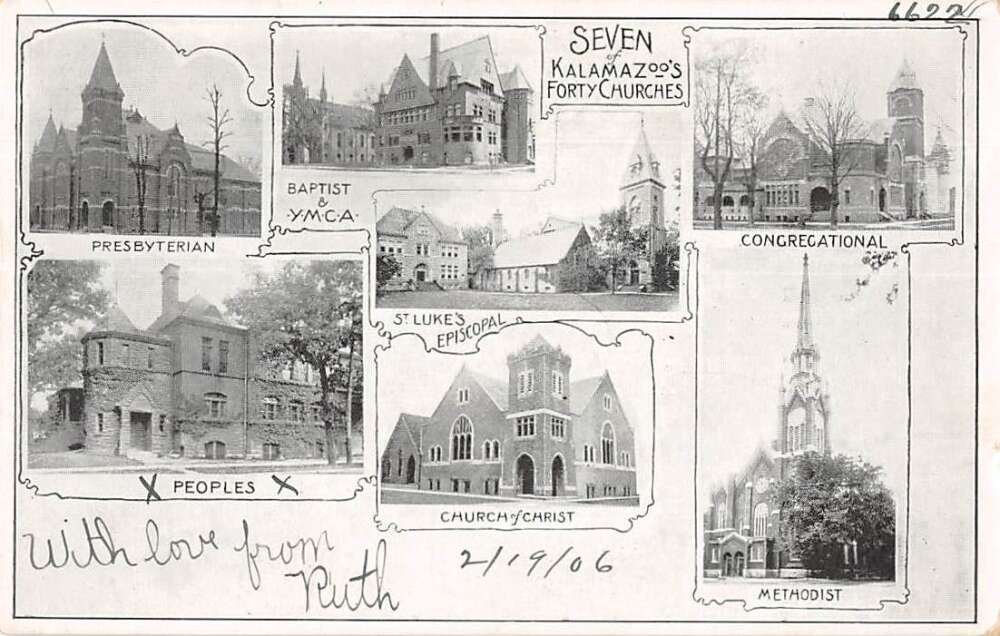 6622
SEVEN
of
KALAMAZOO'S
FORTY CHURCHES
PRESBYTERIAN
BAPTIST
&
·Y·M·C·A·
CONGREGATIONAL
ST LUKE'S
EPISCOPAL
X PEOPLES X
CHURCH of CHRIST
METHODIST
With love from
Ruth
2/19/06